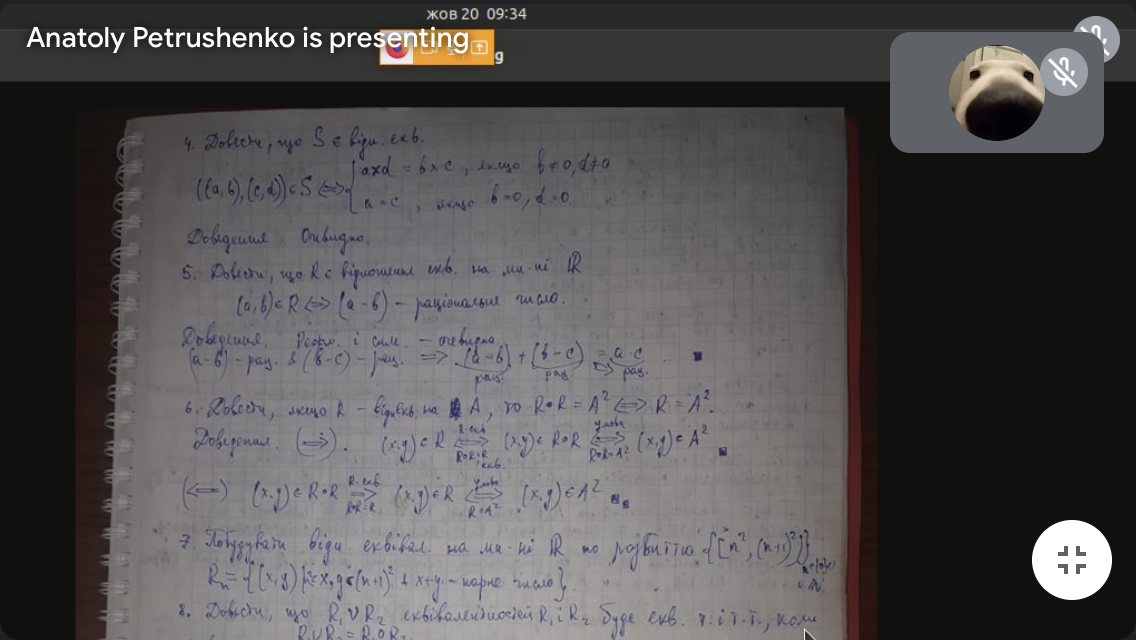 жов 20 09:34
Anatoly Petrushenko is presenting
4. Довести, що S є відн. екв.
((a,b),(c,d)) ∈ S ⟺ { a×d = b×c, якщо b≠0, d≠0
a = c, якщо b=0, d=0.
Доведення Очевидно.
5. Довести, що R є відношення екв. на мн-ні ℝ
(a,b) ∈ R ⟺ (a-b) – раціональне число.
Доведення. Рефл. і сим. – очевидно
(a-b) – рац. & (b-c) – рац. ⟹ (a-b) + (b-c) = a-c
рац. рац. рац.
6. Довести, якщо R – відн екв на A, то R∘R = A² ⟺ R = A².
Доведення. (⟹). (x,y) ∈ R ⟺ (x,y) ∈ R∘R ⟺ (x,y) ∈ A²
R-екв. R∘R=R умова R∘R=A²
екв.
(⟸) (x,y) ∈ R∘R ⟹ (x,y) ∈ R ⟺ (x,y) ∈ A²
R-екв. R∘R=R умова R=A²
7. Побудувати відн. еквівал. на мн-ні ℝ по розбиттю {[n², (n+1)²)}
8. Довести, що R₁∪R₂ еквівалентностей R₁ і R₂ буде екв. т. і т.т., коли
R₁∪R₂ = R₁∘R₂